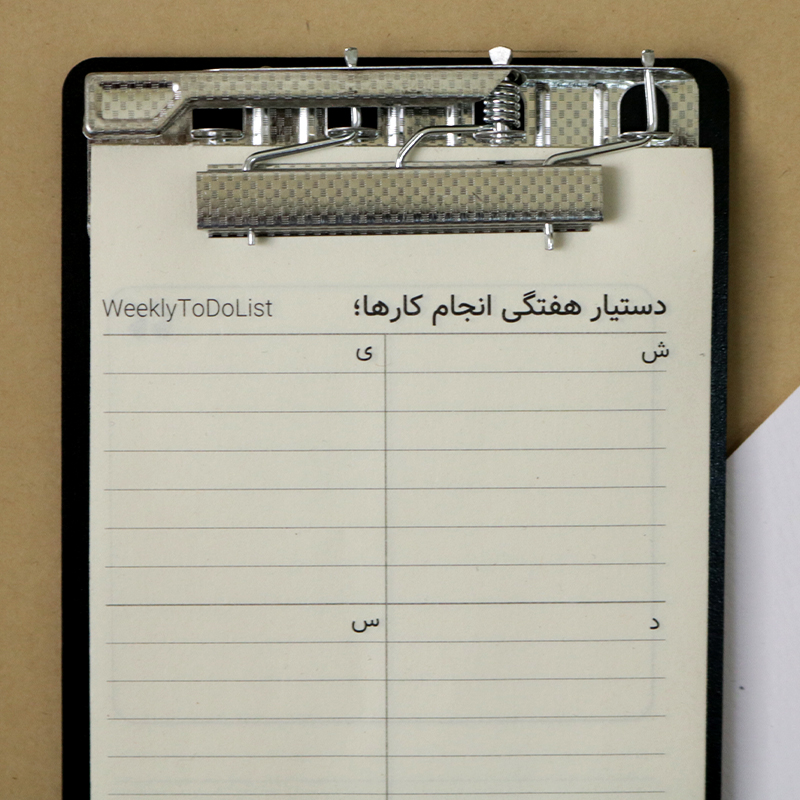 دستیار هفتگی انجام کارها؛ WeeklyToDoList
ش ی
د س